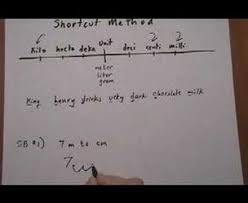 Shortcut Method
2 2
Kilo hecto deka Unit deci centi milli
meter
liter
gram
King henry drinks ucky dark chocolate milk
7 m to cm
7